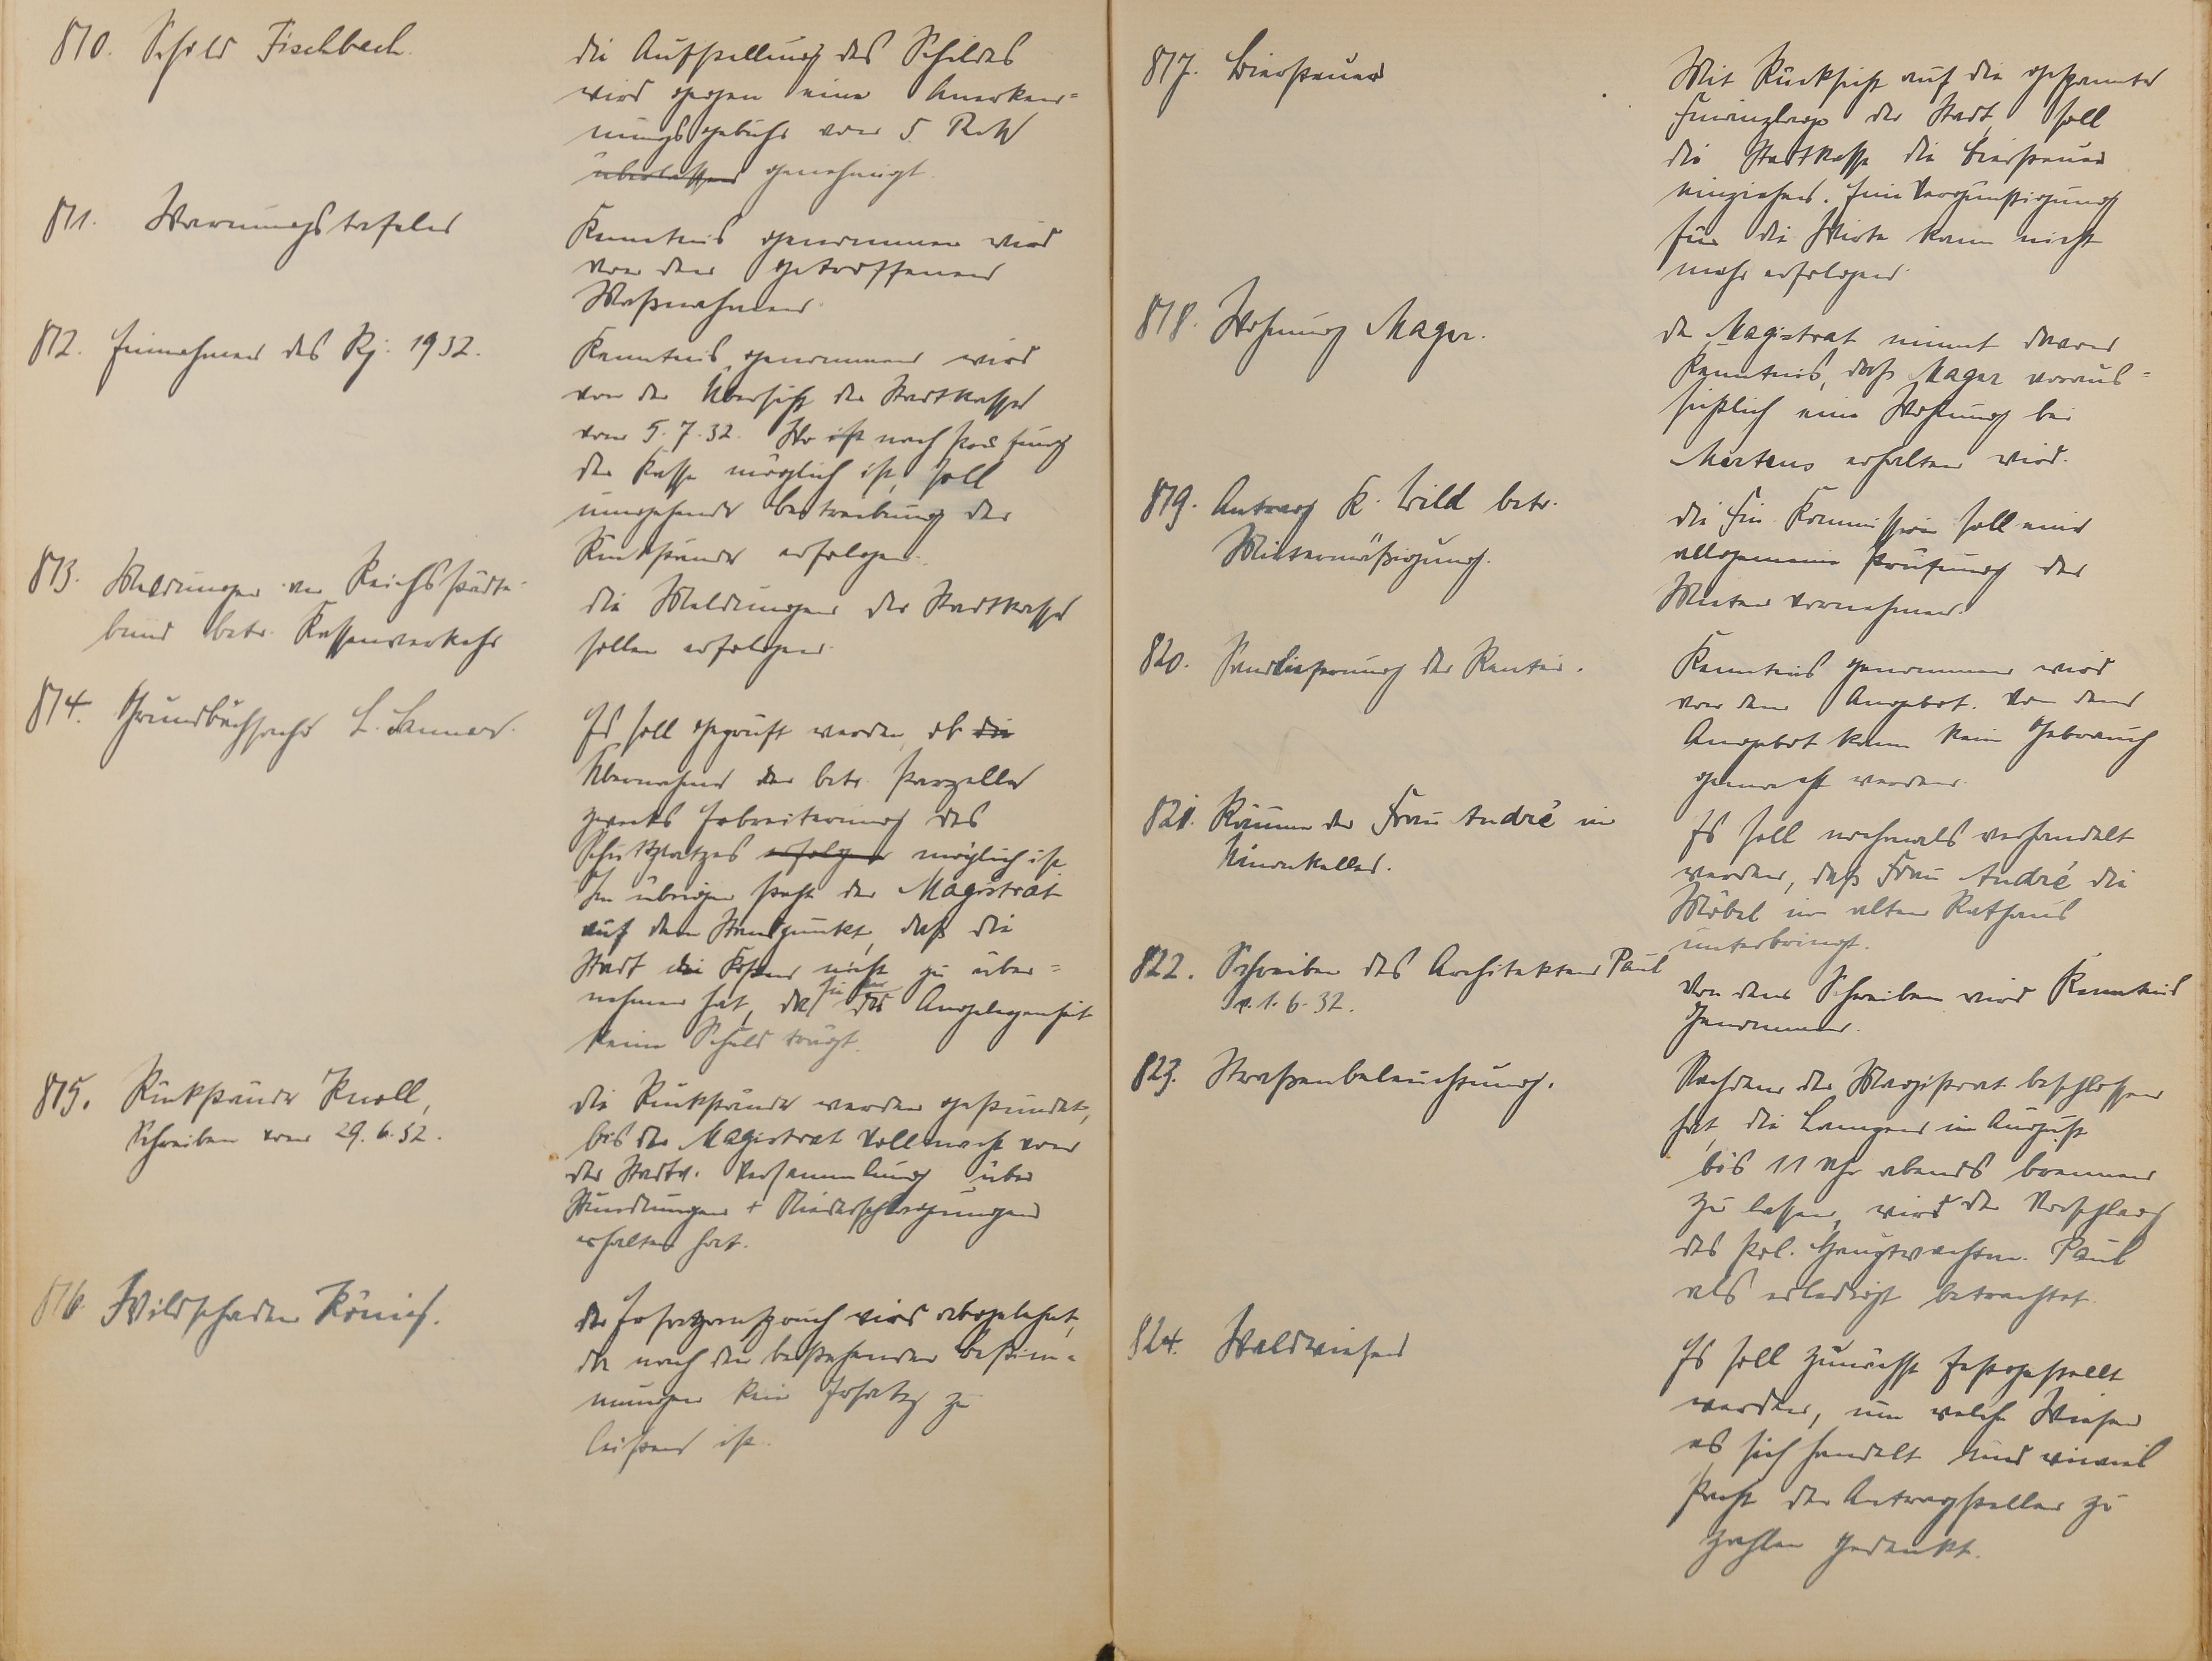 810. Schild Fischbach.
die Aufstellung des Schildes
wird gegen eine Anerken=
nungsgebühr von 5. RM
überlassen genehmigt.
811. Warnungstafeln
Kenntnis genommen wird
von den getroffenen
Maßnahmen.
812. Einnahmen des Rj. 1932.
Kenntnis genommen wird
von der Übersicht der Stadtkasse
vom 5.7.32. Wo ist nach
der Kasse möglich ist, soll
umgehende Beitreibung der
Rückstände erfolgen.
813. Meldungen an Reichsstädte-
bund betr. Kassenverkehr
die Meldungen der Stadtkasse
sollen erfolgen.
814. Grundbuchsache L.
Es soll geprüft werden, ob die
Übernahme der betr. Parzelle
zwecks Erbreiterung des
Schuttplatzes erfolgen möglich ist
Im übrigen steht der Magistrat
auf dem Standpunkt, daß die
Stadt die Kosten nicht zu über=
nehmen hat, da sie an der Angelegenheit
keine Schuld trägt.
815. Rückstände Knoll,
Schreiben vom 29.6.32.
die Rückstände werden gestundet,
bis der Magistrat Vollmacht von
der Stadtv. Versammlung über
Stundungen + Niederschlagungen
erhalten hat.
816. Wildschaden König.
der Ersatzanspruch wird abgelehnt,
da nach den bestehenden Bestim=
mungen kein Ersatz zu
leisten ist.
817. Biersteuer
Mit Rücksicht auf die gespannte
Finanzlage der Stadt, soll
die Stadtkasse die Biersteuer
einziehen. Eine Vergünstigung
für die Wirte kann nicht
mehr erfolgen.
818. Wohnung Mager.
der Magistrat nimmt davon
Kenntnis, daß Mager voraus=
sichtlich eine Wohnung bei
Martens erhalten wird.
819. Antrag K. Wild betr.
Mietermäßigung.
die Fin. Kommission soll eine
allgemeine Prüfung der
Mieten vornehmen.
820. Sandlieferung der Rentei.
Kenntnis genommen wird
von dem Angebot. Von dem
Angebot kann kein Gebrauch
gemacht werden.
821. Räume der Frau André im
Es soll nochmals verhandelt
werden, daß Frau André die
Möbel im alten Rathaus
unterbringt.
822. Schreiben des Architekten Paul
v. 1.6.32.
Von dem Schreiben wird Kenntnis
genommen.
823. Straßenbeleuchtung.
Nachdem der Magistrat beschlossen
hat, die Lampen im August
bis 11 Uhr abends brennen
zu lassen, wird der Vorschlag
des Pol. Hauptwachtm. Paul
als erledigt betrachtet.
824. Waldwiesen
Es soll zunächst festgestellt
werden, um welche Wiesen
es sich handelt und wieviel
Pacht der Antragsteller zu
zahlen gedenkt.